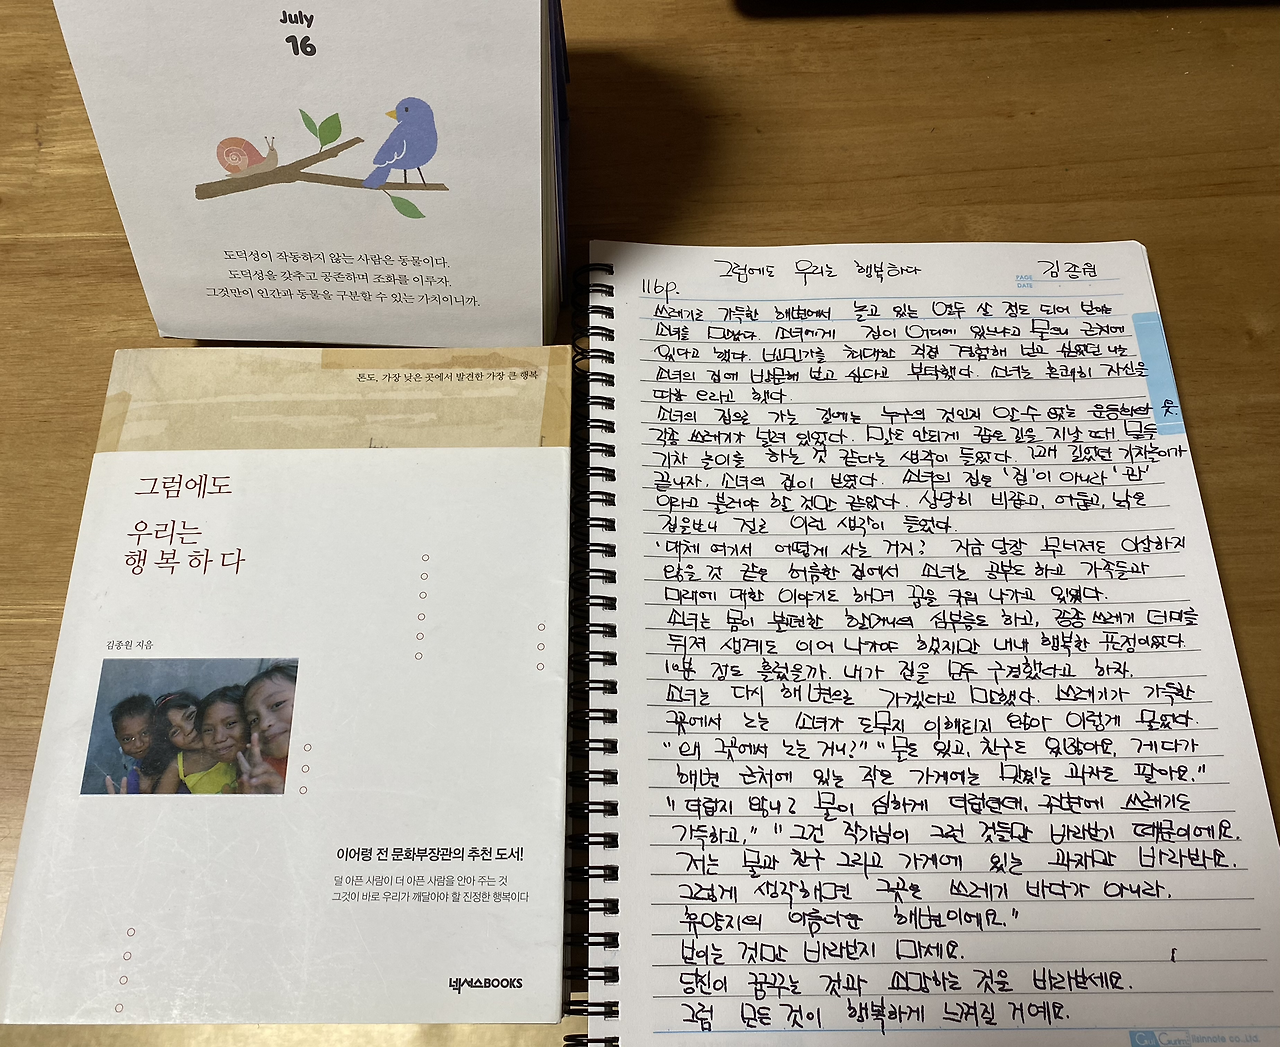 July
16
도덕성이 작동하지 않는 사람은 동물이다.
도덕성을 갖추고 공존하며 조화를 이루자.
그것만이 인간과 동물을 구분할 수 있는 가치이니까.
톤도, 가장 낮은 곳에서 발견한 가장 큰 행복
그럼에도
우리는
행복하다
김종원 지음
이어령 전 문화부장관의 추천 도서!
덜 아픈 사람이 더 아픈 사람을 안아 주는 것
그것이 바로 우리가 깨달아야 할 진정한 행복이다
넥서스BOOKS
그럼에도 우리는 행복하다 김종원
PAGE
DATE
116p.
쓰레기로 가득한 해변에서 놀고 있는 열두 살 정도 되어 보이는
소녀를 만났다. 소녀에게 집이 어디에 있느냐고 물으니 근처에
있다고 했다. 빈민가를 최대한 직접 경험해 보고 싶었던 나는
소녀의 집에 방문해 보고 싶다고 부탁했다. 소녀는 흔쾌히 자신을
따라 오라고 했다.
소녀의 집으로 가는 길에는 누구의 것인지 알 수 없는 운동화와 옷,
각종 쓰레기가 널려 있었다. 말도 안되게 좁은 길을 지날 때 문득
기차 놀이를 하는 것 같다는 생각이 들었다. 꽤 길었던 기차놀이가
끝나자, 소녀의 집이 보였다. 소녀의 집은 '집'이 아니라 '관'
이라고 불러야 할 것만 같았다. 상당히 비좁고, 어둡고, 낡은
집을 보니 절로 이런 생각이 들었다.
'대체 여기서 어떻게 사는 거지? 지금 당장 무너져도 이상하지
않을 것 같은 허름한 집에서 소녀는 공부도 하고 가족들과
미래에 대한 이야기도 하며 꿈을 키워 나가고 있었다.
소녀는 몸이 불편한 할머니의 심부름도 하고, 각종 쓰레기 더미를
뒤져 생계도 이어 나가야 했지만 내내 행복한 표정이었다.
10분 정도 흘렀을까. 내가 집을 모두 구경했다고 하자,
소녀는 다시 해변으로 가겠다고 말했다. 쓰레기가 가득한
곳에서 노는 소녀가 도무지 이해되지 않아 이렇게 물었다.
"왜 그곳에서 노는 거니?" "물도 있고, 친구도 있잖아요, 게다가
해변 근처에 있는 작은 가게에는 맛있는 과자도 팔아요."
"더럽지 않니? 물이 심하게 더럽던데, 주변에 쓰레기도
가득하고," "그건 작가님이 그런 것들만 바라보기 때문이에요.
저는 물과 친구 그리고 가게에 있는 과자만 바라봐요.
그렇게 생각하면 그곳은 쓰레기 바다가 아니라,
휴양지의 아름다운 해변이에요."
보이는 것만 바라보지 마세요.
당신이 꿈꾸는 것과 소망하는 것을 바라보세요.
그럼 모든 것이 행복하게 느껴질 거예요.